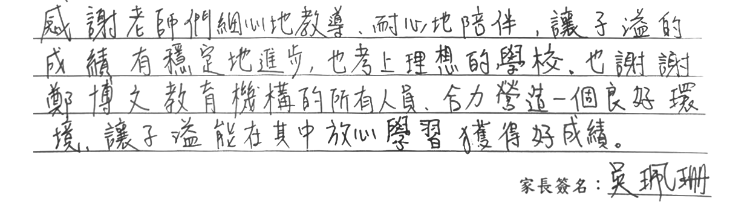 感謝老師們細心地教導、耐心地陪伴，讓子溢的
成績有穩定地進步，也考上理想的學校、也謝謝
鄭博文教育機構的所有人員、合力營造一個良好環
境、讓子溢能在其中放心學習獲得好成績。
家長簽名：吳珮珊